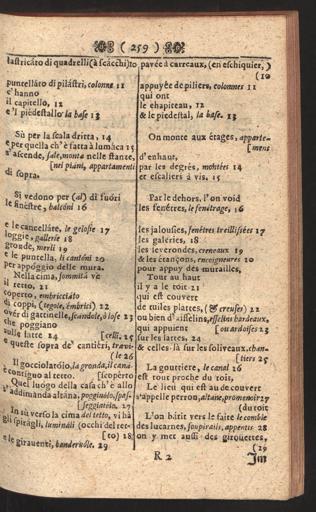 (259)
lastricáto di quadrelli (à scàcchi)
puntelláto di pilástri, colonne 11
c'hanno
il capitello, 12
e'l piedestallo la base 13
Sù per la scala dritta, 14
e per quella ch'è fatta à lumàca 15
s'ascende, sale, monta nelle stante,
[nei piani, appartamenti
di sopra.
Si vedono per (al) di fuori
le finéstre, balcóni 16
e le cancelláte, le gelosie 17
loggie, gallerie 18
gronde, merli 19
e le puntella, li cantóni 20
per appóggio delle mura.
Nella cima, sommità vè
il tetto, 21
coperto, embricciáto
di coppi, (tegole, émbrici) 22
ovér di gattinelle, scandole, ò lose 23
che poggiano
sulle latte 24
[celli. 25
e queste sopra de' cantiéri, travi-
(le 26
Il gocciolatóio, la gronda, il caná-
è contiguo al tetto. [scopèrto
Quel luógo della casa ch'è allo
s'addimánda altána, poggiuólo, spas-
[seggiatóio. 27
In sù verso la cima del tetto, vi hà
gli spirágli, luminàli (occhi del tet-
[to) 28
e le giraventi, banderuóle. 29
to pavée à carreaux, (en eschiquier,)
(10
appuyée de piliers, colomnes 11
qui ont
le chapiteau, 12
& le piedestal, la base. 13
On monte aux étages, apparte-
[mens
d'enhaut,
par les degrés, montées 14
et escaliers à vis. 15
Par le dehors, l'on void
les fenétres, le fenétrage, 16
les jalousies, fenétres treillisées 17
les galéries, 18
les severondes, creneaux 19
& les étançons, encoigneures 20
pour appuy des murailles,
Tout au haut
il y a le toit 21
qui est couvert
de tuiles plattes, (& creuses) 22
ou bien d'aisselins, esselins bardeaux,
qui appuient [ou ardoises 23
sur les lattes. 24
& celles-là sur les soliveaux. chan-
[tiers 25
La gouttiere, le canal 26
est tout proche du toit,
Le lieu qui est au decouvert
s'appelle perron, altane, promenoir 27
(du toit
L'on bátit vers le faite le comble
des lucarnes, soupirails, appentis 28
on y met aussi des giroüettes,
(29
R 2
Im